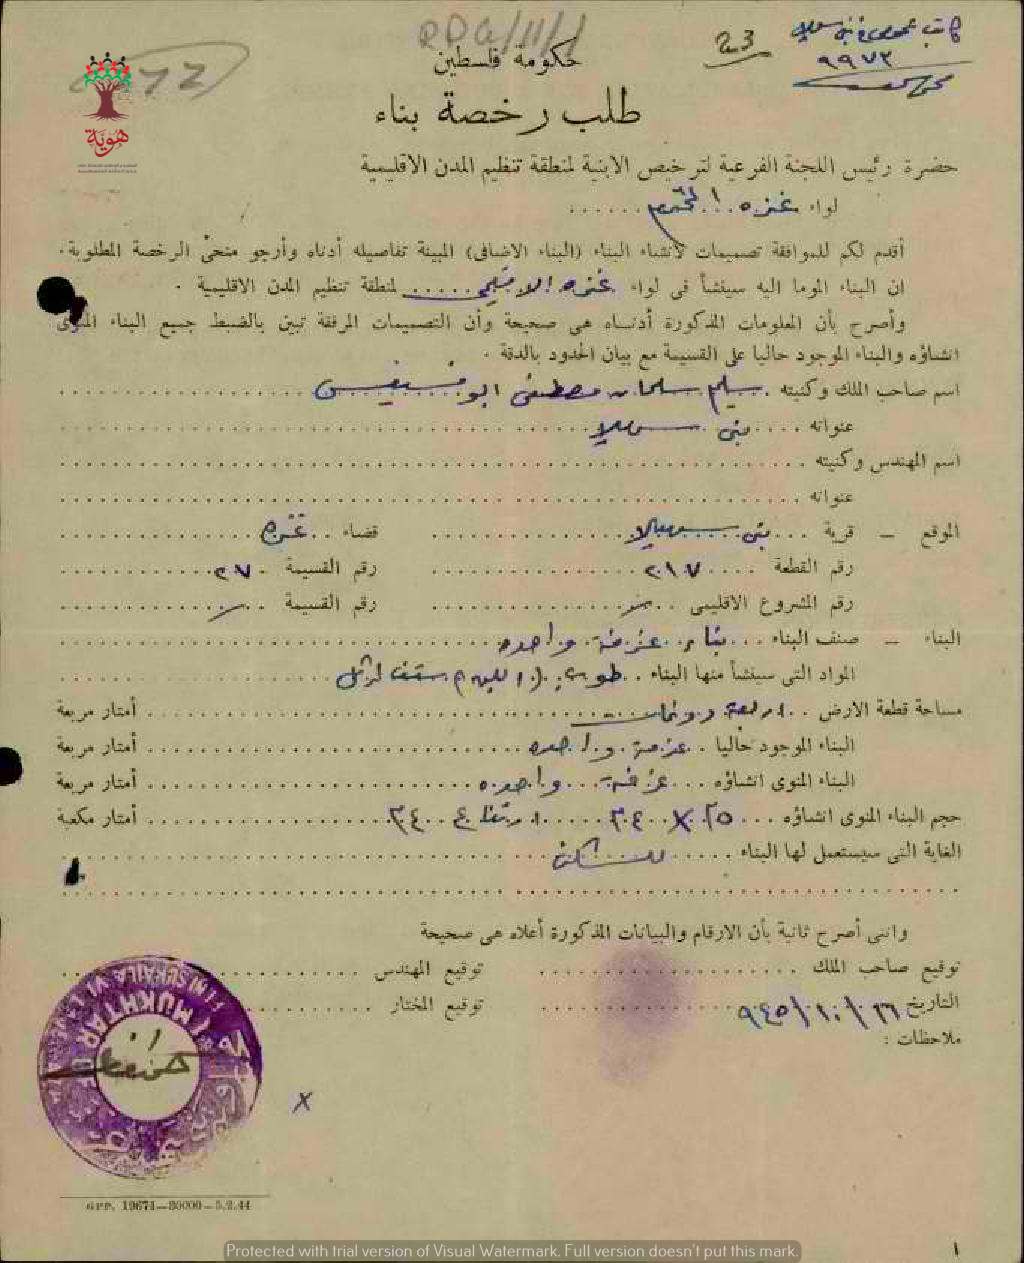 PDG/11/1
23
٩٩٧٢
حكومة فلسطين
هوية
طلب رخصة بناء
حضرة رئيس اللجنة الفرعية لترخيص الابنية لمنطقة تنظيم المدن الاقليمية
لواء غزه المحترم
أقدم لكم للموافقة تصميمات لأنشاء البناء (البناء الاضافى) المبينة تفاصيله أدناه وأرجو منحىّ الرخصة المطلوبة.
ان البناء الموما اليه سينشأ فى لواء غزه الاقليمي لمنطقة تنظيم المدن الاقليمية .
وأصرح بأن المعلومات المذكورة أدناه هى صحيحة وأن التصميمات المرفقة تبين بالضبط جميع البناء المنوى
انشاؤه والبناء الموجود حاليا على القسيمة مع بيان الحدود بالدقة .
اسم صاحب الملك وكنيته سليم سلمان مصطفى ابو
عنوانه بنى سهيلا
اسم المهندس وكنيته
عنوانه
الموقع – قرية بنى سهيلا قضاء غزه
رقم القطعة ٢٠١٧ رقم القسيمة ٢٠٧
رقم المشروع الاقليمى رقم القسيمة
البناء – صنف البناء بناء غرفة واحده
المواد التى سينشأ منها البناء طوب اللبن سقف
مساحة قطعة الارض اربعة دونمات أمتار مربعة
البناء الموجود حاليا غرفة واحده أمتار مربعة
البناء المنوى انشاؤه غرفة واحده أمتار مربعة
حجم البناء المنوى انشاؤه ارتفاع أمتار مكعبة
الغاية التى سيستعمل لها البناء للسكن
وانى أصرح ثانية بأن الارقام والبيانات المذكورة أعلاه هى صحيحة
توقيع صاحب الملك توقيع المهندس
التاريخ ٢٦/١٠/٩٤٥ توقيع المختار
ملاحظات :
MUKHTAR OF
BENI SUHAILA VILLAGE
X
GPP. 19674—30000—5.2.44
١
Protected with trial version of Visual Watermark. Full version doesn't put this mark.